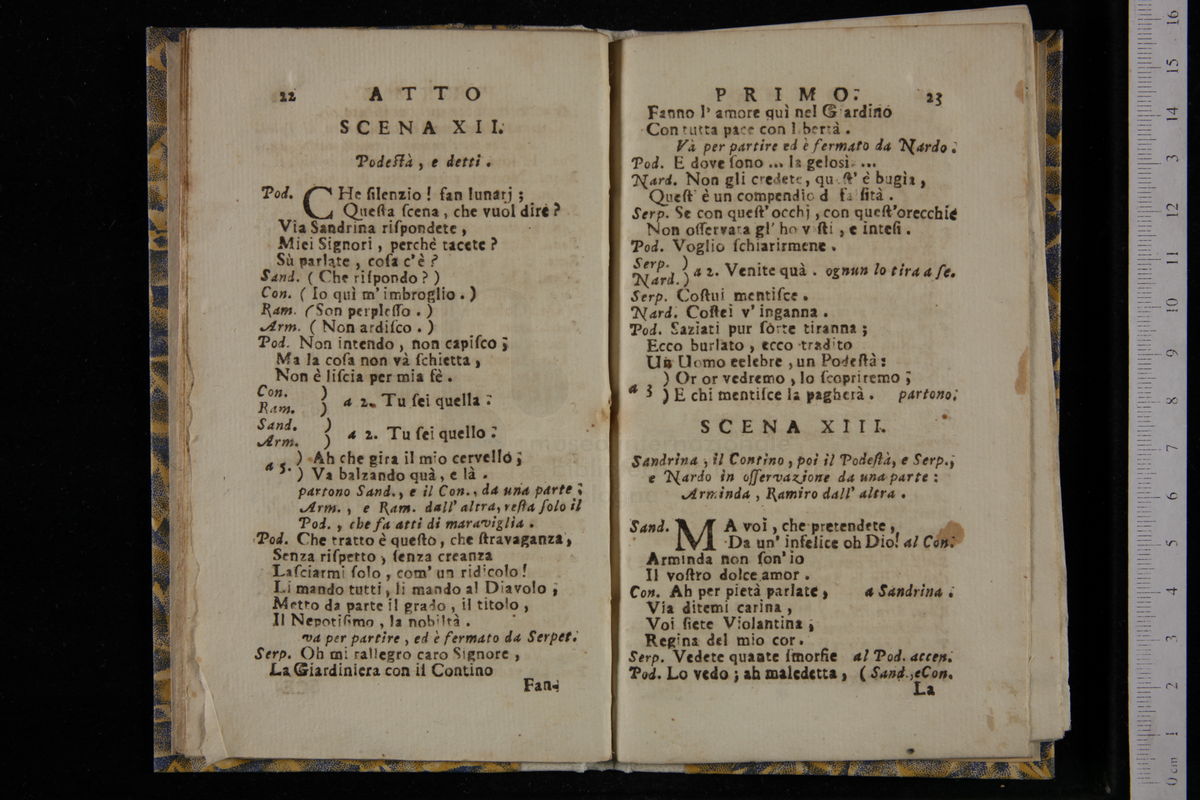 22 ATTO
SCENA XII.
Podestà, e detti.
Pod. CHe silenzio! fan lunarj;
Questa scena, che vuol dire?
Via Sandrina rispondete,
Miei Signori, perchè tacete?
Sù parlate, cosa c'è?
Sand. (Che rispondo?)
Con. (Io quì m'imbroglio.)
Ram. (Son perplesso.)
Arm. (Non ardisco.)
Pod. Non intendo, non capisco;
Ma la cosa non và schietta,
Non è liscia per mia fè.
Con. )
Ram. ) a 2. Tu sei quella:
Sand. )
Arm. ) a 2. Tu sei quello:
a 5. ) Ah che gira il mio cervello;
) Va balzando quà, e là.
partono Sand., e il Con., da una parte;
Arm., e Ram. dall'altra, resta solo il
Pod., che fa atti di maraviglia.
Pod. Che tratto è questo, che stravaganza,
Senza rispetto, senza creanza
Lasciarmi solo, com'un ridicolo!
Li mando tutti, li mando al Diavolo;
Metto da parte il grado, il titolo,
Il Nepotismo, la nobiltà.
va per partire, ed è fermato da Serpet.
Serp. Oh mi rallegro caro Signore,
La Giardiniera con il Contino
Fan-
PRIMO. 23
Fanno l'amore quì nel Giardino
Con tutta pace con libertà.
Và per partire ed è fermato da Nardo.
Pod. E dove sono ... la gelosia ...
Nard. Non gli credete, quest'è bugia,
Quest'è un compendio di falsità.
Serp. Se con quest'occhj, con quest'orecchie
Non osservata gl'ho visti, e intesi.
Pod. Voglio schiarirmene.
Serp. )
Nard. ) a 2. Venite quà. ognun lo tira a se.
Serp. Costui mentisce.
Nard. Costei v'inganna.
Pod. Saziati pur sorte tiranna;
Ecco burlato, ecco tradito
Un Uomo celebre, un Podestà:
a 3 ) Or or vedremo, lo scopriremo;
) E chi mentisce la pagherà. partono.
SCENA XIII.
Sandrina, il Contino, poi il Podestà, e Serp.,
e Nardo in osservazione da una parte:
Arminda, Ramiro dall'altra.
Sand. MA voi, che pretendete,
Da un'infelice oh Dio! al Con.
Arminda non son'io
Il vostro dolce amor.
Con. Ah per pietà parlate, a Sandrina.
Via ditemi carina,
Voi siete Violantina;
Regina del mio cor.
Serp. Vedete quante smorfie al Pod. accen.
Pod. Lo vedo; ah maledetta, (Sand., e Con.
La